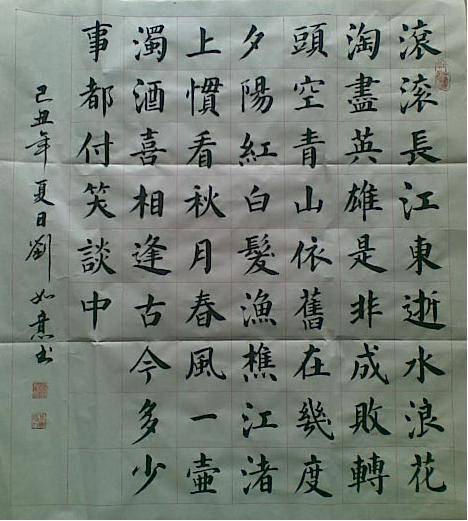 滾滾長江東逝水浪花
淘盡英雄是非成敗轉
頭空青山依舊在幾度
夕陽紅白髮漁樵江渚
上慣看秋月春風一壺
濁酒喜相逢古今多少
事都付笑談中
己丑年夏日劉如意书